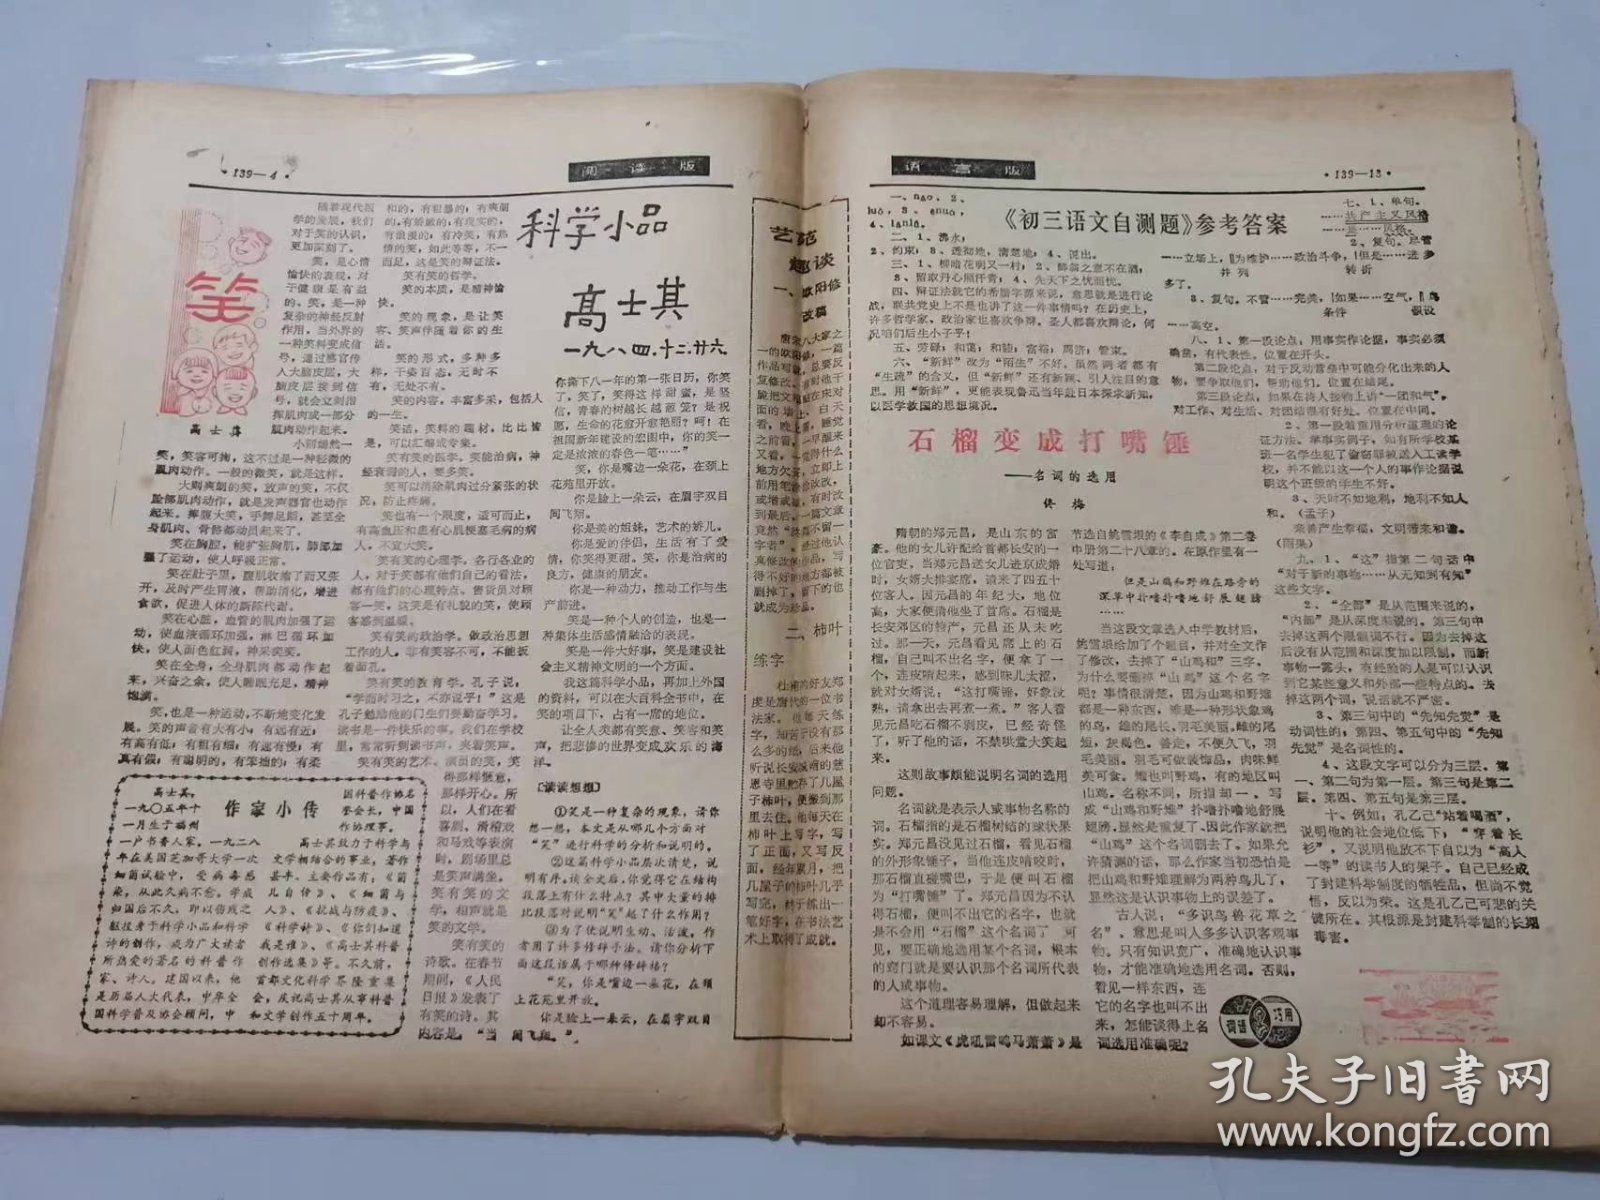 139—4
阅读版
笑
高士其
科学小品
高士其
一九八四.十二.廿六
随着现代医
学的发展，我们
对于笑的认识，
更加深刻了。
笑，是心情
愉快的表现，对
于健康是有益
的。笑，是一种
复杂的神经反射
作用，当外界的
一种笑料变成信
号，通过感官传
入大脑皮层，大
脑皮层接到信
号，就会立刻指
挥肌肉或一部分
肌肉动作起来。
小则嫣然一
笑，笑容可掬，这不过是一种轻微的
肌肉动作。一般的微笑，就是这样。
大则爽朗的笑，放声的笑，不仅
脸部肌肉动作，就是发声器官也动作
起来。捧腹大笑，手舞足蹈，甚至全
身肌肉、骨骼都动员起来了。
笑在胸腔，能扩张胸肌，肺部加
强了运动，使人呼吸正常。
笑在肚子里，腹肌收缩了而又张
开，及时产生胃液，帮助消化，增进
食欲，促进人体的新陈代谢。
笑在心脏，血管的肌肉加强了运
动，使血液循环加强，淋巴循环加
快，使人面色红润，神采奕奕。
笑在全身，全身肌肉都动作起
来，兴奋之余，使人睡眠充足，精神
饱满。
笑，也是一种运动，不断地变化发
展。笑的声音有大有小；有远有近；
有高有低；有粗有细；有快有慢；有
真有假；有聪明的，有笨拙的；有柔
和的，有粗暴的；有爽朗
的，有娇嫩的；有现实的，
有浪漫的；有冷笑，有热
情的笑，如此等等，不一
而足，这是笑的辩证法。
笑有笑的哲学。
笑的本质，是精神愉
快。
笑的现象，是让笑
容、笑声伴随着你的生
活。
笑的形式，多种多
样，千姿百态，无时不
有，无处不有。
笑的内容，丰富多采，包括人
的一生。
笑话，笑料的题材，比比皆
是，可以汇编成专集。
笑有笑的医学。笑能治病，神
经衰弱的人，要多笑。
笑可以消除肌肉过分紧张的状
况，防止疼痛。
笑也有一个限度，适可而止，
有高血压和患有心肌梗塞毛病的病
人，不宜大笑。
笑有笑的心理学。各行各业的
人，对于笑都有他们自己的看法，
都有他们的心理特点。售货员对顾
客一笑，这笑是有礼貌的笑，使顾
客感到温暖。
笑有笑的政治学。做政治思想
工作的人，非有笑容不可，不能板
着面孔。
笑有笑的教育学。孔子说：
“学而时习之，不亦说乎！”这是
孔子勉励他的门生们要勤奋学习。
读书是一件快乐的事。我们在学校
里，常常听到读书声，夹着笑声。
笑有笑的艺术。演员的笑，笑
得那样惬意，
那样开心。所
以，人们在看
喜剧、滑稽戏
和马戏等表演
时，剧场里总
是笑声满座。
笑有笑的文
学，相声就是
笑的文学。
笑有笑的
诗歌。在春节
期间，《人民
日报》发表了
有笑的诗。其
内容是：“当
你撕下八一年的第一张日历，你笑
了，笑了，笑得这样甜蜜，是坚
信，青春的树越长越葱茏？是祝
愿，生命的花愈开愈艳丽？呵！在
祖国新年建设的宏图中，你的笑一
定是浓浓的春色一笔……”
笑，你是嘴边一朵花，在颈上
花苑里开放。
你是脸上一朵云，在眉宇双目
间飞翔。
你是美的姐妹，艺术的娇儿。
你是爱的伴侣，生活有了爱
情，你笑得更甜。笑，你是治病的
良方，健康的朋友。
你是一种动力，推动工作与生
产前进。
笑是一种个人的创造，也是一
种集体生活感情融洽的表现。
笑是一件大好事，笑是建设社
会主义精神文明的一个方面。
我这篇科学小品，再加上外国
的资料，可以在大百科全书中，在
笑的项目下，占有一席的地位。
让全人类都有笑意、笑容和笑
声，把悲惨的世界变成欢乐的海
洋。
〔读读想想〕
①笑是一种复杂的现象，请你
想一想，本文是从哪几个方面对
“笑”进行科学的分析和说明的。
②这篇科学小品层次清楚，说
明有序。读全文后，你觉得它在结构
段落上有什么特点？其中大量的排
比段落对说明“笑”起了什么作用？
③为了使说明生动、活泼，作
者用了许多修辞手法。请你分析下
面这段话属于哪种修辞格？
“笑，你是嘴边一朵花，在颈
上花苑里开放。
你是脸上一朵云，在眉宇双目
间飞翔。”
作家小传
高士其，
一九〇五年十
一月生于福州
一户书香人家。一九二八
年在美国芝加哥大学一次
细菌试验中，受病毒感
染，从此久病不愈。学成
归国后不久，即以伤残之
躯投身于科学小品和科学
诗的创作，成为广大读者
所热爱的著名的科普作
家、诗人。建国以来，他
是历届人大代表，中华全
国科学普及协会顾问，中
国科普作协名
誉会长，中国
作协理事。
高士其致力于科学与
文学相结合的事业，著作
甚丰。主要作品有：《菌
儿自传》、《细菌与
人》、《抗战与防疫》、
《科学诗》、《你们知道
我是谁》、《高士其科普
创作选集》等。不久前，
首都文化科学界隆重集
会，庆祝高士其从事科普
和文学创作五十周年。
艺苑
趣谈
一、欧阳修
改稿
二、柿叶
练字
语言版
139—13
《初三语文自测题》参考答案
二、1、沸水；
2、约束；3、透彻地，清楚地；4、说出。
三、1、柳暗花明又一村；2、醉翁之意不在酒；
3、留取丹心照汗青；4、先天下之忧而忧。
四、辩证法就它的希腊字源来说，意思就是进行论
战，联共党史上不是也讲了这一件事情吗？在历史上，
许多哲学家、政治家也喜欢争辩。圣人都喜欢辩论，何
况咱们后生小子乎！
五、劳碌；和蔼；和睦；富裕；周济；管束。
六、“新鲜”改为“陌生”不好。虽然两者都有
“生疏”的含义，但“新鲜”还有新颖、引人注目的意
思。用“新鲜”，更能表现鲁迅当年赴日本探求新知，
以医学救国的思想境况。
七、1、单句。
……共产主义风格
……是……风格。
2、复句。尽管
……立场上，‖为维护……政治斗争，|但是……进步
并列
转折
多了。
3、复句。不管……完美，|如果……空气，‖鸟
条件
假设
……高空。
八、1、第一段论点，用事实作论据，事实必须
确凿，有代表性。位置在开头。
第二段论点，对于反动营垒中可能分化出来的人
物，要争取他们，帮助他们。位置在结尾。
第三段论点，如果在待人接物上讲“一团和气”，
对工作、对生活、对团结很有好处。位置在中间。
2、第一段着重用分析道理的论
证方法。举事实例子，如有所学校某
班一名学生犯了偷窃罪被送入工读学
校，并不能以这一个人的事作论据说
明这个班级的学生不好。
3、天时不如地利，地利不如人
和。（孟子）
亲善产生幸福，文明带来和谐。
（雨果）
九、1、“这”指第二句话中
“对于新的事物……从无知到有知”
这些文字。
2、“全部”是从范围来说的，
“内部”是从深度来说的。第三句中
去掉这两个限制词不行。因为去掉这
后没有从范围和深度加以限制，而新
事物一露头，有经验的人是可以认识
到它某些意义和外部一些特点的。去
掉这两个词，说话就不严密。
3、第三句中的“先知先觉”是
动词性的；第四、第五句中的“先知
先觉”是名词性的。
4、这段文字可以分为三层。第
一、第二句为第一层。第三句是第二
层。第四、第五句是第三层。
十、例如：孔乙己“站着喝酒”，
说明他的社会地位低下，“穿着长
衫”，又说明他放不下自以为“高人
一等”的读书人的架子。自己已经成
了封建科举制度的牺牲品，但尚不觉
悟，反以为荣。这是孔乙己可悲的关
键所在。其根源是封建科举制的长期
毒害。
石榴变成打嘴锤
——名词的选用
佟梅
隋朝的郑元昌，是山东的富
豪。他的女儿许配给首都长安的一
位官吏，当郑元昌送女儿进京成婚
时，女婿大排宴席，请来了四五十
位客人。因元昌的年纪大，地位
高，大家便请他坐了首席。石榴是
长安郊区的特产，元昌还从未吃
过。那一天，元昌看见席上的石
榴，自己叫不出名字，便拿了一
个，连皮啃起来，感到味儿太涩，
就对女婿说：“这打嘴锤，好象没
熟，请拿出去再煮一煮。”客人看
见元昌吃石榴不剥皮，已经奇怪
了，听了他的话，不禁哄堂大笑起
来。
这则故事颇能说明名词的选用
问题。
名词就是表示人或事物名称的
词。石榴指的是石榴树结的球状果
实。郑元昌没见过石榴，看见石榴
的外形象锤子，当他连皮啃咬时，
那石榴直碰嘴巴，于是便叫石榴
为“打嘴锤”了。郑元昌因为不认
得石榴，便叫不出它的名字，也就
是不会用“石榴”这个名词了。可
见，要正确地选用某个名词，根本
的窍门就是要认识那个名词所代表
的人或事物。
这个道理容易理解，但做起来
却不容易。
如课文《虎吼雷鸣马萧萧》是
节选自姚雪垠的《李自成》第二卷
中册第二十八章的。在原作里有一
处写道：
但是山鸡和野雉在路旁的
深草中扑噜扑噜地舒展翅膀
……
当这段文章选入中学教材后，
姚雪垠给加了个题目，并对全文作
了修改，去掉了“山鸡和”三字。
为什么要删掉“山鸡”这个名字
呢？事情很清楚，因为山鸡和野雉
都是一种东西，雉是一种形状象鸡
的鸟，雄的尾长，羽毛美丽，雌的尾
短，灰褐色。善走，不便久飞，羽
毛美丽。羽毛可做装饰品，肉味鲜
美可食。雉也叫野鸡，有的地区叫
山鸡。名称不同，所指却一。写
成“山鸡和野雉”扑噜扑噜地舒展
翅膀，显然是重复了。因此作家就把
“山鸡”这个名词删去了。如果允
许猜测的话，那么作家当初恐怕是
把山鸡和野雉理解为两种鸟儿了，
显然这是认识事物上的误差了。
古人说：“多识鸟兽花草之
名”，意思是叫人多多认识客观事
物。只有知识宽广，准确地认识事
物，才能准确地选用名词。否则，
看见一样东西，连
它的名字也叫不出
来，怎能谈得上名
词选用准确呢？
词语
巧用
孔夫子旧书网
www.kongfz.com